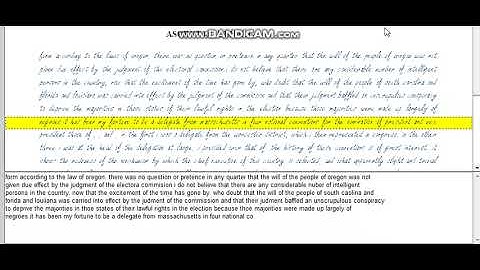 AS
www.BANDICAM.com
form according to the law of oregon. there was no question or pretence in any quarter that the will of the people of oregon was not
given due effect by the judgment of the electoral commission. i do not believe that there are any considerable number of intelligent
persons in the country, now that the excitement of the time has gone by, who doubt that the will of the people of south carolina and
florida and louisiana was carried into effect by the judgment of the commission and that their judgment baffled an unscrupulous conspiracy
to deprive the majorities in those states of their lawful rights in the election because those majorities were made up largely of
negroes it has been my fortune to be a delegate from massachusetts in four national conventions for the nomination of president and vice
president those of , and in the first i was a delegate from the worcester district, which i then represented in congress. in the other
three i was at the head of the delegation at large. i presided over that of the history of these conventions is of great interest. it
shows the of the mechanism by which the chief executive of this country is selected and what apparently slight and trivial
form according to the law of oregon. there was no question or pretence in any quarter that the will of the people of oregon was not
given due effect by the judgment of the electora commssion i do not believe that there are any considerable nuber of inteligent
persons in the country, now that the excement of the tima has gone by. who doubt that the will of the people of south caolina and
florida and louiana was carried into effect by the judment of the commission and that their judment baffled an unscrupulous conspiracy
to deprive the majorities in thoe states of their lawful rights in the election because thoe majorities were made up largely of
negroes it has been my fortune to be a delegate from massachusetts in four national co